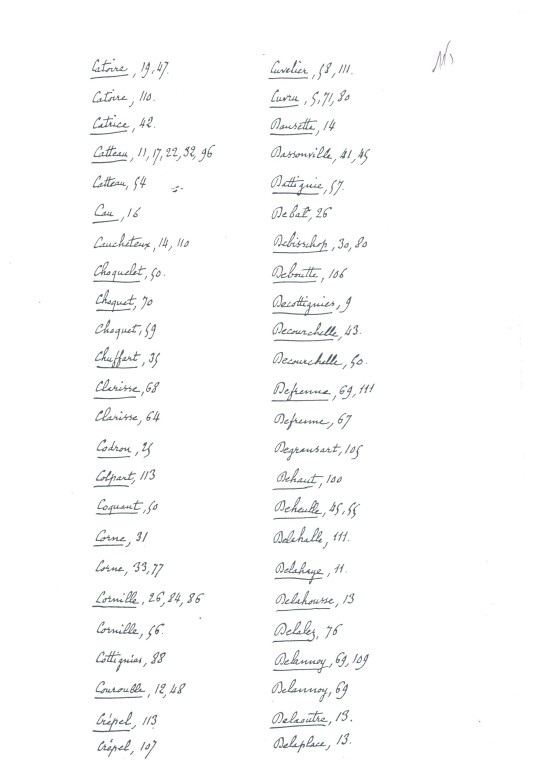 Catoire, 19, 47.
Catoire, 110.
Catrice, 42.
Catteau, 11, 17, 22, 32, 96
Catteau, 54
Cau, 16
Caucheteux, 14, 110
Choquelet, 50.
Choquet, 70
Choquet, 59
Chuffart, 35
Clarisse, 68
Clarisse, 64
Codron, 25
Colpart, 113
Coquant, 50
Corne, 31
Corne, 33, 77
Cornille, 26, 84, 86
Cornille, 56.
Cottignies, 88
Courouble, 12, 48
Crépel, 113
Crépel, 107
Cuvelier, 58, 111.
Cuvru, 5, 71, 80
Dansette, 14
Dassonville, 41, 45
Dattignie, 57.
Debat, 26
Debisschop, 30, 80
Deboutte, 106
Decottignies, 9
Decourchelle, 43.
Decourchelle, 50.
Defrenne, 69, 111
Defrenne, 67
Degransart, 105
Dehaut, 100
Deheulle, 45, 55
Delahalle, 111.
Delahaye, 11.
Delahousse, 13
Delalez, 76
Delannoy, 69, 109
Delannoy, 69
Delaoutre, 13.
Delaplace, 13.